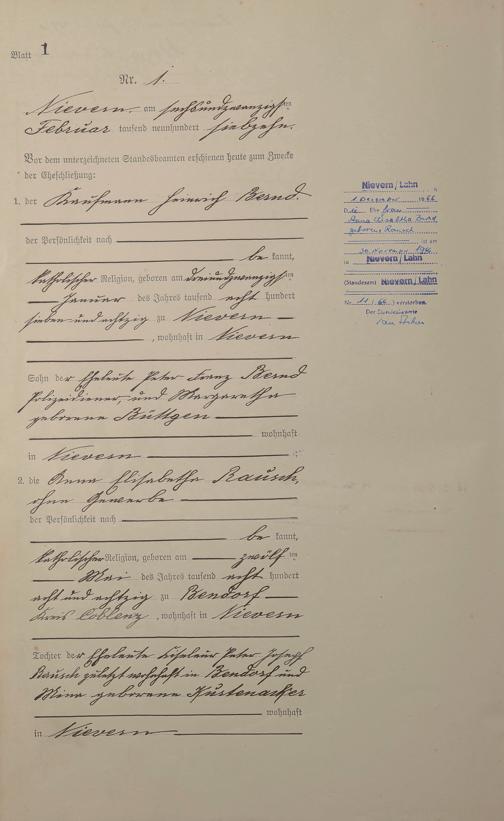 Blatt 1
Nr. 1.
Nievern am sechsundzwanzigsten
Februar tausend neunhundert siebzehn.
Vor dem unterzeichneten Standesbeamten erschienen heute zum Zwecke
der Eheschließung:
1. der Kaufmann Heinrich Bernd.
der Persönlichkeit nach
be kannt,
katholischer Religion, geboren am dreiundzwanzigsten
Januar des Jahres tausend acht hundert
sieben und achtzig zu Nievern
, wohnhaft in Nievern
Sohn der Eheleute Peter Franz Bernd
Polizeidiener, und Margaretha
geborene Büttgen
wohnhaft
in Nievern
2. die Anna Elisabetha Rausch,
ohne Gewerbe
der Persönlichkeit nach
be kannt,
katholischer Religion, geboren am zwölften
Mai des Jahres tausend acht hundert
acht und achtzig zu Bendorf
Kreis Coblenz, wohnhaft in Nievern
Tochter der Eheleute Peter Joseph
Rausch zuletzt wohnhaft in Bendorf und
Mina geborene Küstenacker
wohnhaft
in Nievern
Nievern/Lahn
1. Dezember 1966
Die Ehefrau
Anna Elisabetha Bernd
geborene Rausch
ist am
30. November 1966
in Nievern/Lahn
(Standesamt Nievern/Lahn
Nr. 11/66) verstorben
Der Standesbeamte